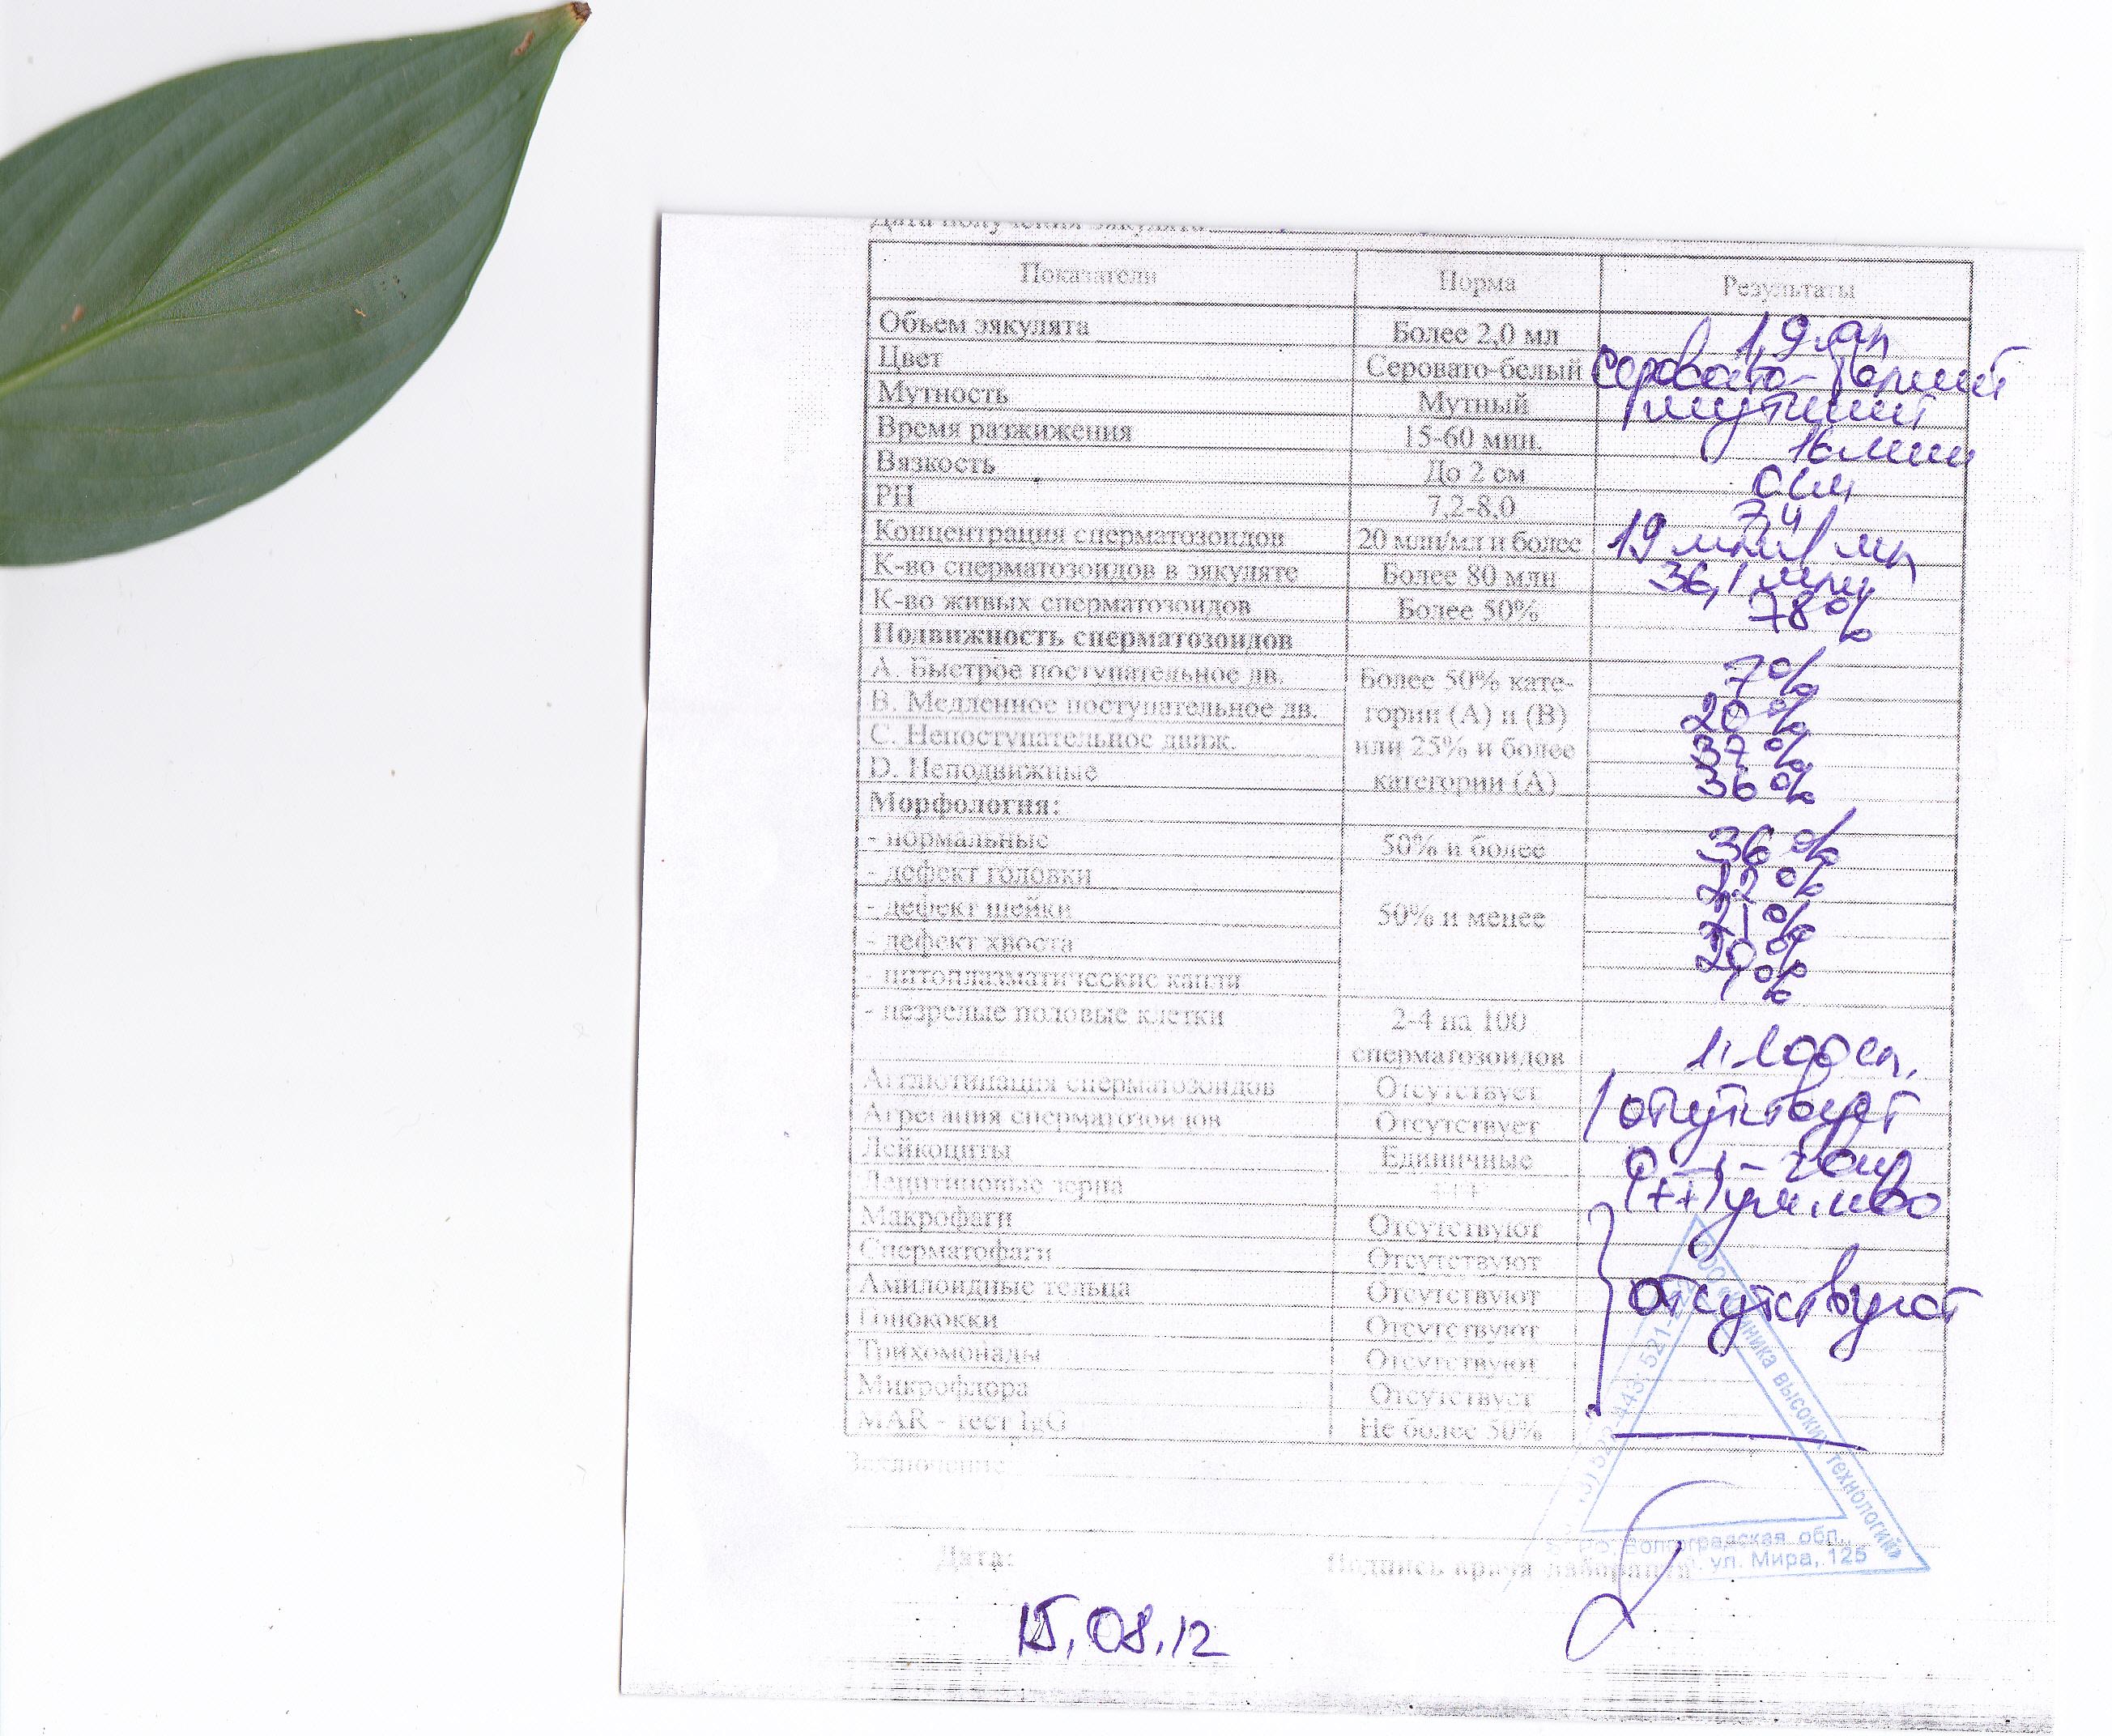 Дата получения эякулята
Показатели Норма Результаты
Объем эякулята Более 2,0 мл 1,9 мл
Цвет Серовато-белый серовато-белый
Мутность Мутный мутный
Время разжижения 15-60 мин. 16 мин
Вязкость До 2 см 0 см
РН 7,2-8,0 7,4
Концентрация сперматозоидов 20 млн/мл и более 19 млн/мл
К-во сперматозоидов в эякуляте Более 80 млн 36,1 млн
К-во живых сперматозоидов Более 50% 78%
Подвижность сперматозоидов
А. Быстрое поступательное дв. Более 50% кате- 7%
В. Медленное поступательное дв. гории (А) и (В) 20%
С. Непоступательное движ. или 25% и более 37%
D. Неподвижные категории (А) 36%
Морфология:
- нормальные 50% и более 36%
- дефект головки 22%
- дефект шейки 50% и менее 21%
- дефект хвоста 20%
- цитоплазматические капли 1%
- незрелые половые клетки 2-4 на 100
сперматозоидов 1:100сп.
Агглютинация сперматозоидов Отсутствует отсутствует
Агрегация сперматозоидов Отсутствует
Лейкоциты Единичные 0-1-2
Лецитиновые зерна +++ (++) ум.
Макрофаги Отсутствуют
Сперматофаги Отсутствуют
Амилоидные тельца Отсутствуют отсутствуют
Гонококки Отсутствуют
Трихомонады Отсутствуют
Микрофлора Отсутствует
MAR - тест IgG Не более 50%
Заключение
Дата: Подпись врача лаборанта
15.08.12
ООО клиника высоких технологий»
Волгоградская обл.,
ул. Мира, 125